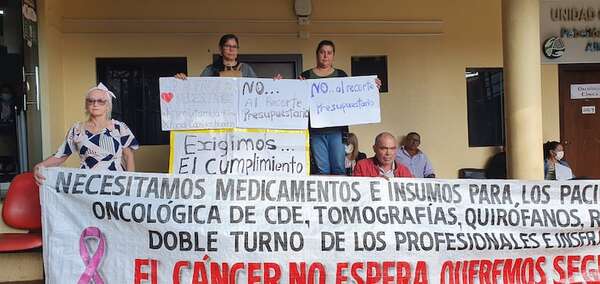 UNIDAD
NO...
Al Recorte
Presupuestario
NO.. al recorte
Presupuestario
Exigimos...
El Cumplimiento
NECESITAMOS MEDICAMENTOS E INSUMOS PARA LOS PACI
ONCOLÓGICA DE CDE, TOMOGRAFÍAS, QUIRÓFANOS, R
DOBLE TURNO DE LOS PROFESIONALES E INFRA
EL CÁNCER NO ESPERA, QUEREMOS SEG